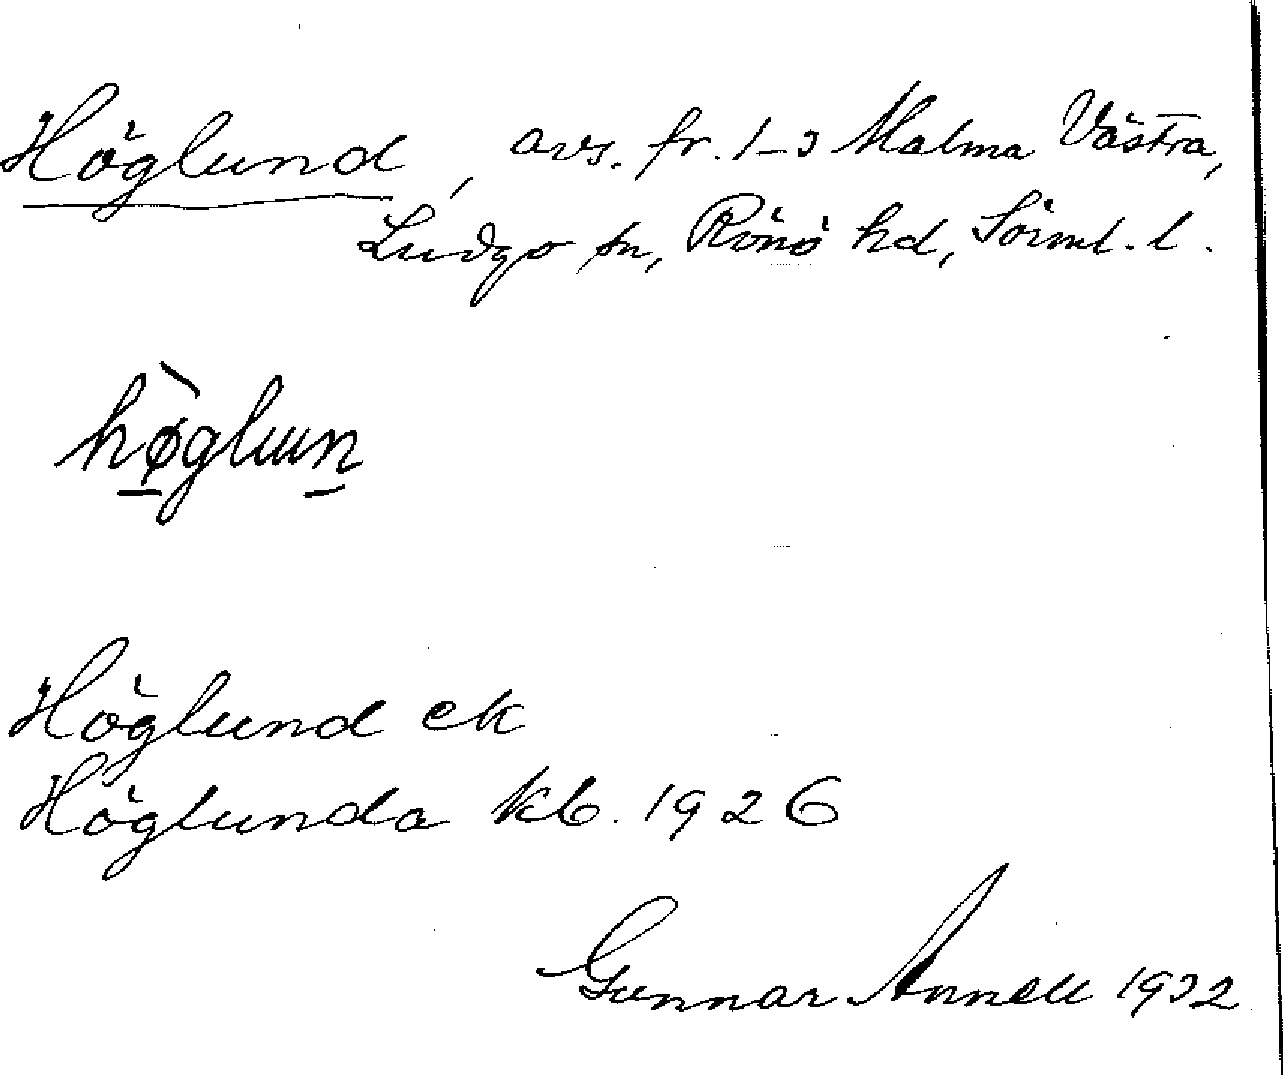 Höglund, avs. fr. 1-3 Malma Västra,
Ludgo sn, Rönö hd, Söirml. l.
hø̀glun
Höglund ek
Höglunda kb. 1926
Gunnar Annell 1932